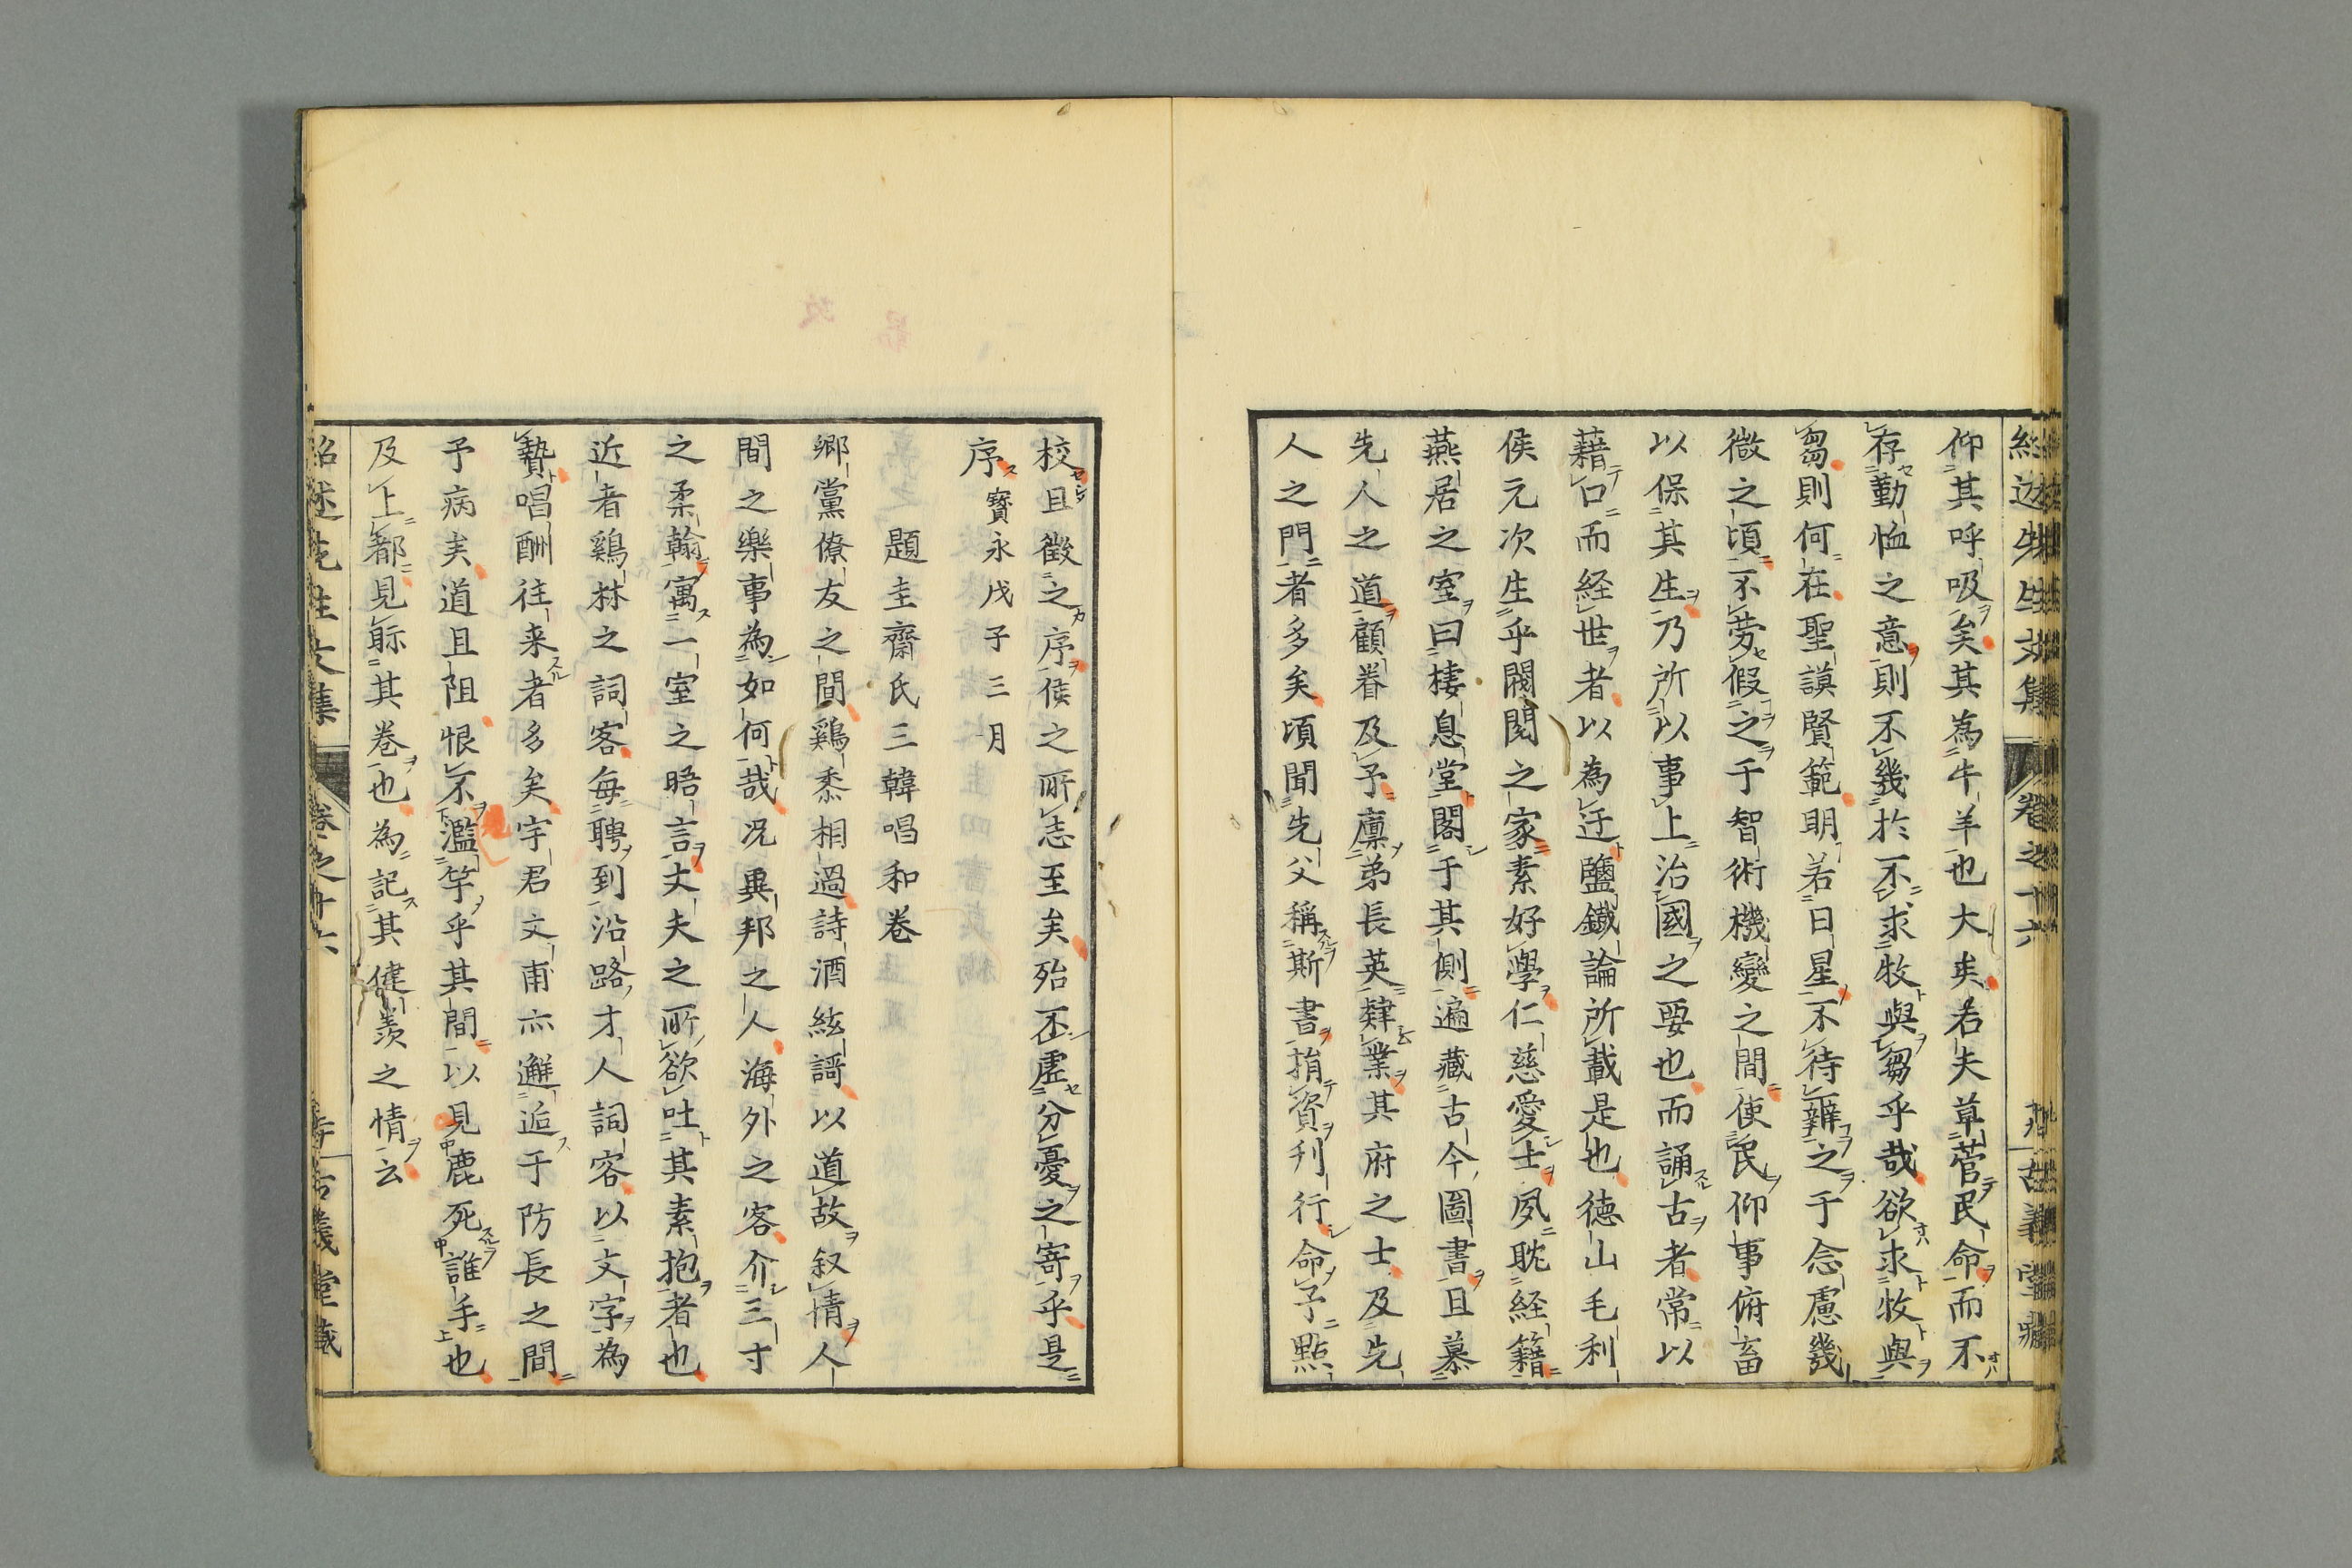 仰其呼吸矣其為牛羊也大矣若夫草菅民命而不
存勤恤之意則不幾於不求牧與芻乎哉欲求牧與
芻則何在聖謨賢範明若日星不待辨之于念慮幾
微之頃不劳假之于智術機變之間使民仰事俯畜
以保其生乃所以事上治國之要也而誦古者常以
藉口而経世者以為迂鹽鐵論所載是也德山毛利
侯元次生乎閥閲之家素好學仁慈愛士夙耽経籍
燕居之室曰棲息堂閣于其側遍藏古今圖書且慕
先人之道顧眷及予廩弟長英肄業其府之士及先
人之門者多矣頃聞先父稱斯書捐資刋行命予點
校且徵之序侯之所志至矣殆不虚分憂之寄乎是
序寳永戊子三月
題圭齋氏三韓唱和卷
鄉黨僚友之間鷄黍相過詩酒絃謌以道故叙情人
間之樂事為如何哉况異邦之人海外之客介三寸
之柔翰寓一室之晤言丈夫之所欲吐其素抱者也
近者鷄林之詞客每聘到沿路才人詞客以文字為
贄唱酬往来者多矣宇君文甫亦邂逅于防長之間
予病矣道且阻恨不濫竽乎其間以見鹿死誰手也
及上都見眎其卷也為記其健羨之情云
紹述先生文集 卷之十六 古義堂藏